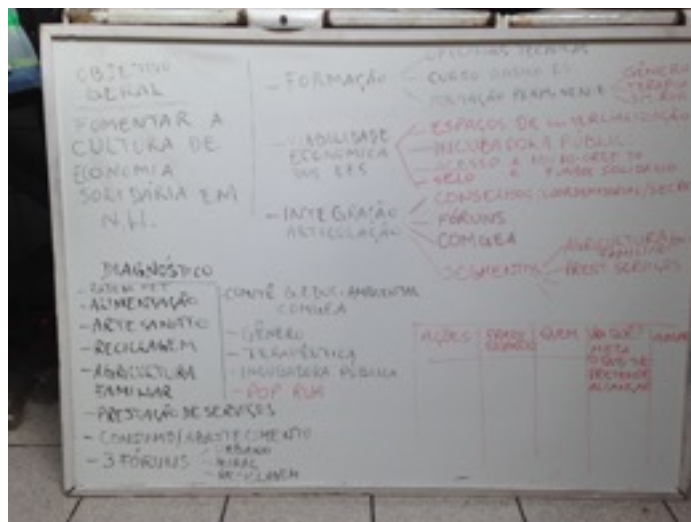 OBJETIVO
GERAL
FOMENTAR A
CULTURA DE
ECONOMIA
SOLIDÁRIA EM
N.H.
- FORMAÇÃO
OFICINAS TÉCNICAS
CURSO
FORMAÇÃO PERMANENTE
GÊNERO
- VIABILIDADE
ECONÔMICA
DOS EES
ESPAÇOS DE COMERCIALIZAÇÃO
INCUBADORA PÚBLIC
ACESSO A
SELO
SOLIDÁRIO
- INTEGRAÇÃO
ARTICULAÇÃO
FÓRUNS
COMGEA
SEGMENTOS
AGRICULTURA
FAMILIAR
PREST. SERVIÇOS
DIAGNÓSTICO
- ALIMENTAÇÃO
- ARTESANATO
- RECICLAGEM
- AGRICULTURA
FAMILIAR
- PRESTAÇÃO DE SERVIÇOS
- CONSUMO/ABASTECIMENTO
- 3 FÓRUNS
URBANO
RURAL
RECICLAGEM
AMBIENTAL
COMGEA
- GÊNERO
- TERAPÊUTICA
- INCUBADORA PÚBLICA
- POP RUA
AÇÕES
PRAZO
QUEM
META
O QUE SE
PRETENDE
ALCANÇAR